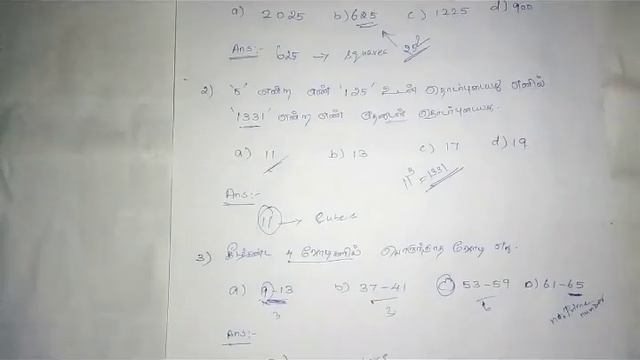 a) 2025 b) 625 c) 1225 d) 900
Ans:- 625 → squares
2) '5' என்ற எண் '125' உடன் தொடர்புடையது எனில்
'1331' என்ற எண் எதனுடன் தொடர்புடையது.
a) 11 b) 13 c) 17 d) 19
11³ = 1331
Ans:-
11 → Cubes
3) கீழ்கண்ட 4 ஜோடிகளில் பொருந்தாத ஜோடி எது.
a) 9-13 b) 37-41 53-59 D) 61-65
3 3 6 not Prime number
Ans:-